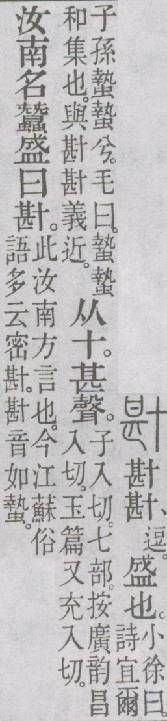 卙卙、逗。盛也。小徐曰。
詩宜爾
子孫蟄蟄兮。毛曰。蟄蟄
和集也。與卙卙義近。
从十。甚聲。
子入切。七部。按廣韵昌
入切。玉篇又充入切。
汝南名蠶盛曰卙。
此汝南方言也。今江蘇俗
語多云密卙。卙音如蟄。